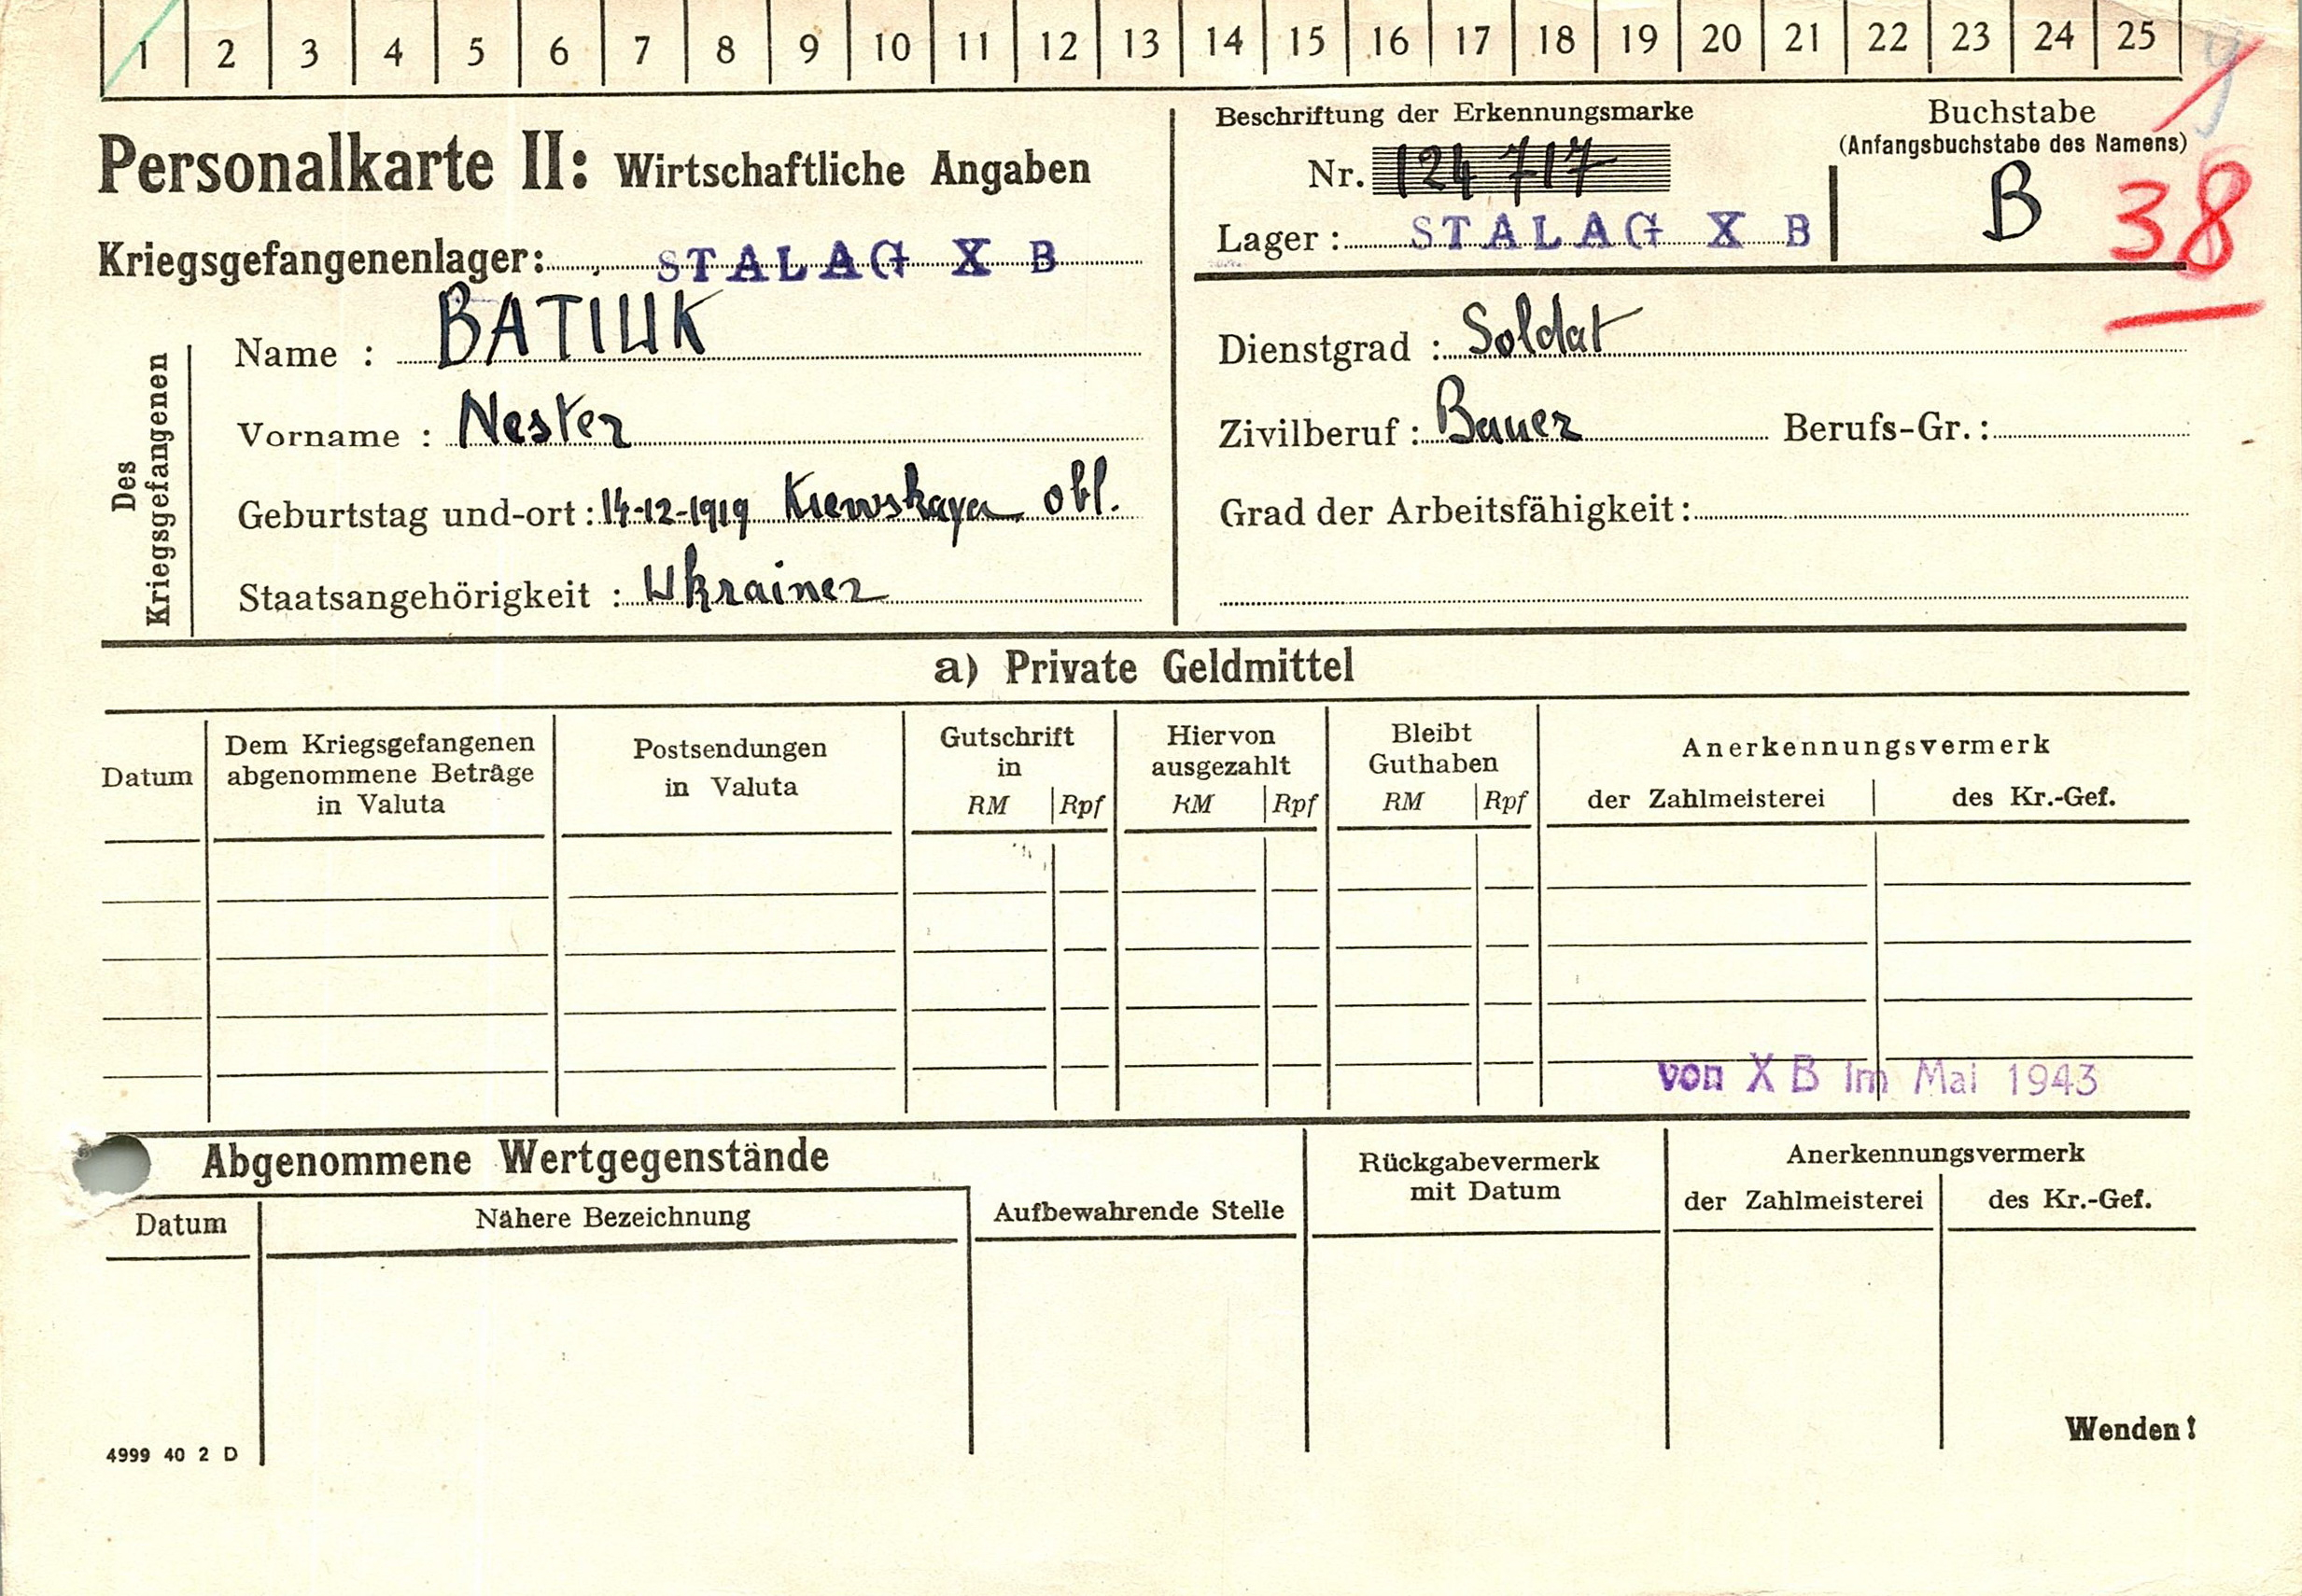 1 2 3 4 5 6 7 8 9 10 11 12 13 14 15 16 17 18 19 20 21 22 23 24 25
Personalkarte II: Wirtschaftliche Angaben
Kriegsgefangenenlager: STALAG X B
Beschriftung der Erkennungsmarke
Nr. 124 717
Lager: STALAG X B
Buchstabe
(Anfangsbuchstabe des Namens)
B
38
Des
Kriegsgefangenen
Name : BATIUK
Vorname : Nester
Geburtstag und-ort: 14-12-1919 Kiewskaya obl.
Staatsangehörigkeit : Ukrainer
Dienstgrad : Soldat
Zivilberuf: Bauer Berufs-Gr.:
Grad der Arbeitsfähigkeit:
a) Private Geldmittel
Datum
Dem Kriegsgefangenen
abgenommene Beträge
in Valuta
Postsendungen
in Valuta
Gutschrift
in
RM Rpf
Hiervon
ausgezahlt
RM Rpf
Bleibt
Guthaben
RM Rpf
Anerkennungsvermerk
der Zahlmeisterei des Kr.-Gef.
von X B im Mai 1943
Abgenommene Wertgegenstände
Datum
Nähere Bezeichnung
Aufbewahrende Stelle
Rückgabevermerk
mit Datum
Anerkennungsvermerk
der Zahlmeisterei des Kr.-Gef.
Wenden!
4999 40 2 D